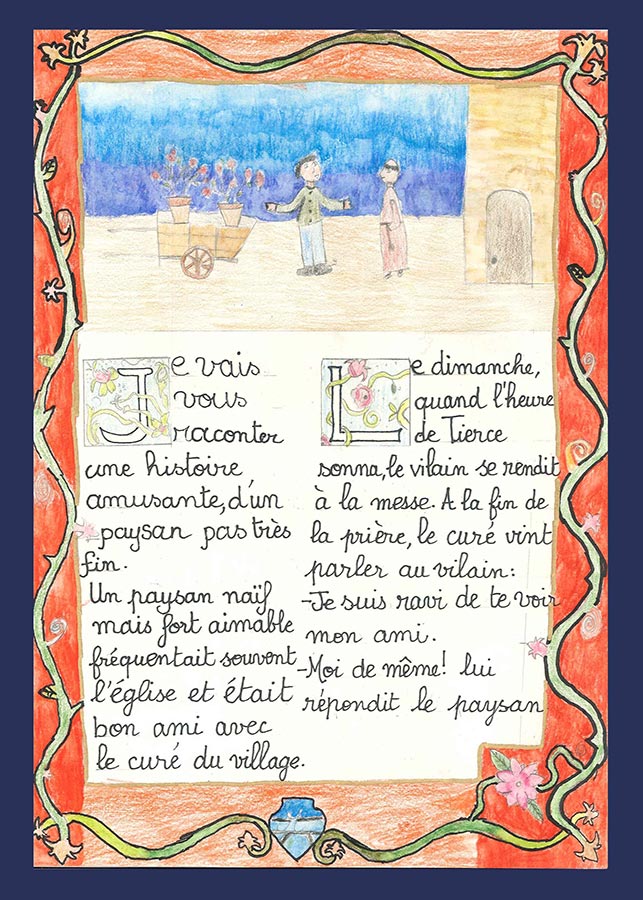 Je vais
vous
raconter
une histoire
amusante, d'un
paysan pas très
fin.
Un paysan naïf
mais fort aimable
fréquentait souvent
l'église et était
bon ami avec
le curé du village.
Le dimanche,
quand l'heure
de Tierce
sonna, le vilain se rendit
à la messe. A la fin de
la prière, le curé vint
parler au vilain:
-Je suis ravi de te voir
mon ami.
-Moi de même! lui
répondit le paysan